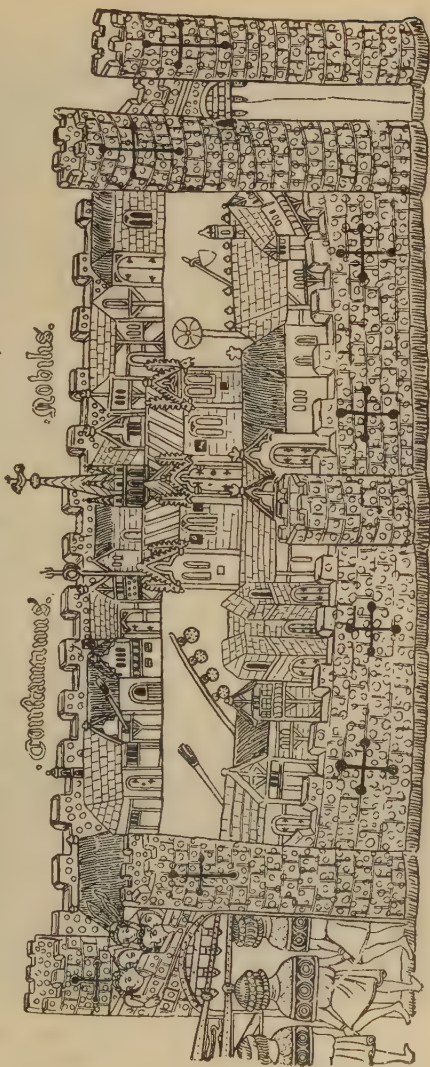 .Constantinus' .Nobilis.